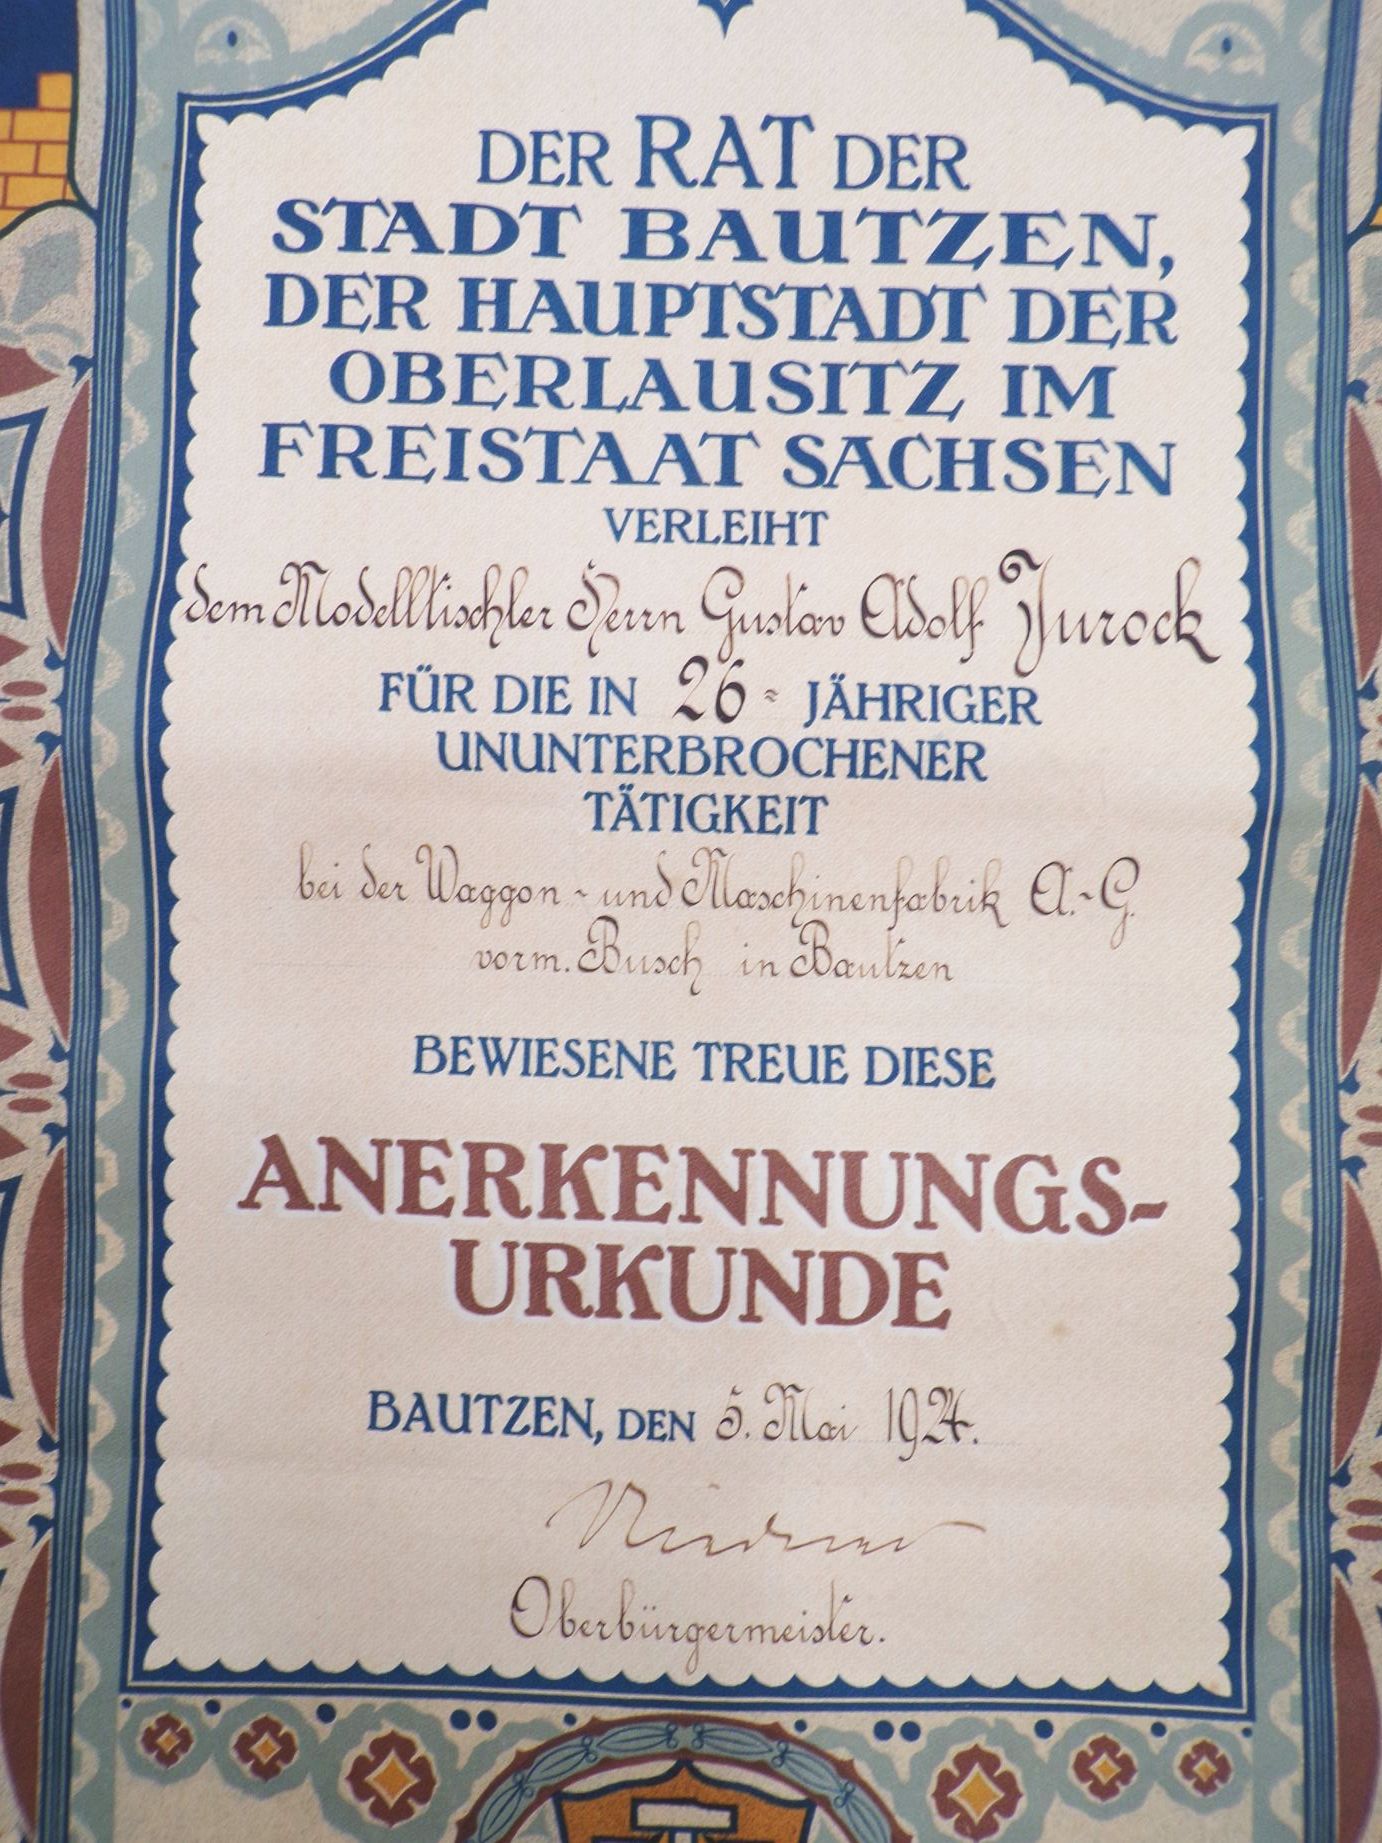 DER RAT DER
STADT BAUTZEN,
DER HAUPTSTADT DER
OBERLAUSITZ IM
FREISTAAT SACHSEN
VERLEIHT
dem Modelltischler Herrn Gustav Adolf Jurock
FÜR DIE IN 26 = JÄHRIGER
UNUNTERBROCHENER
TÄTIGKEIT
bei der Waggon- und Maschinenfabrik A.-G.
vorm. Busch in Bautzen
BEWIESENE TREUE DIESE
ANERKENNUNGS-
URKUNDE
BAUTZEN, DEN 5. Mai 1924.
Oberbürgermeister.